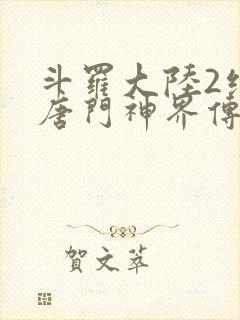 斗羅大陸2絕
唐門神界傳
賀文萃